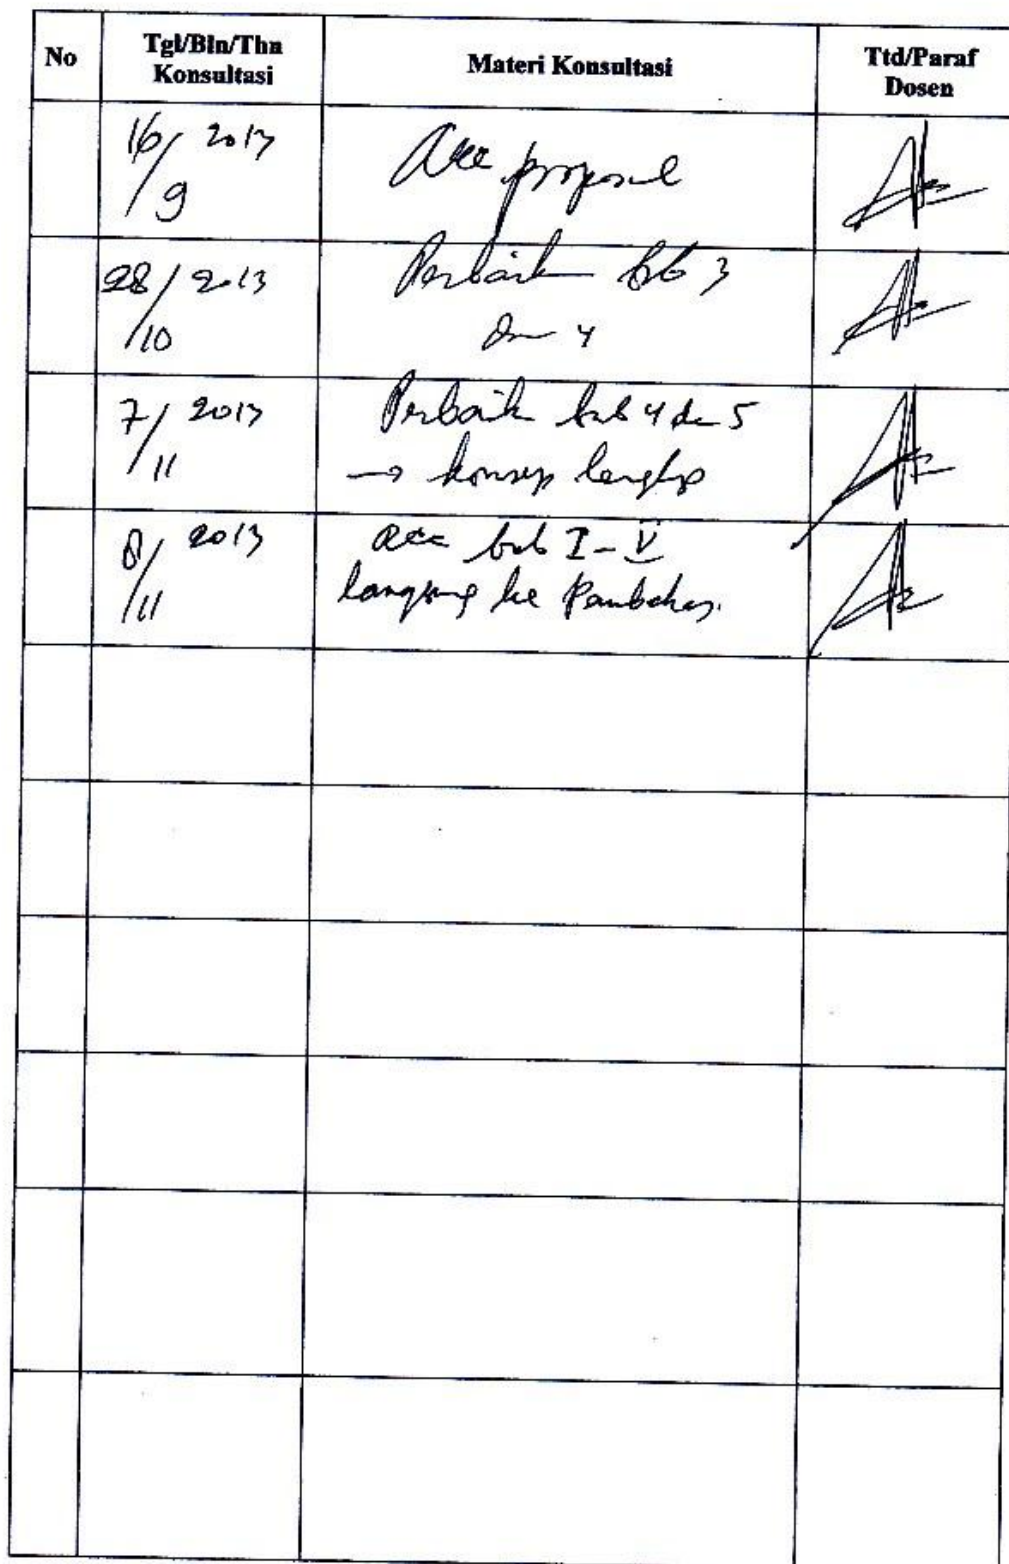 No
Tgl/Bln/Thn
Konsultasi
Materi Konsultasi
Ttd/Paraf
Dosen
16/9 2013
Acc proposal
28/10 2013
Perbaik bab 3
dan 4
7/11 2013
Perbaik bab 4 dan 5
→ konsep lengkap
8/11 2013
acc bab I - V
langsung ke Pembahas.